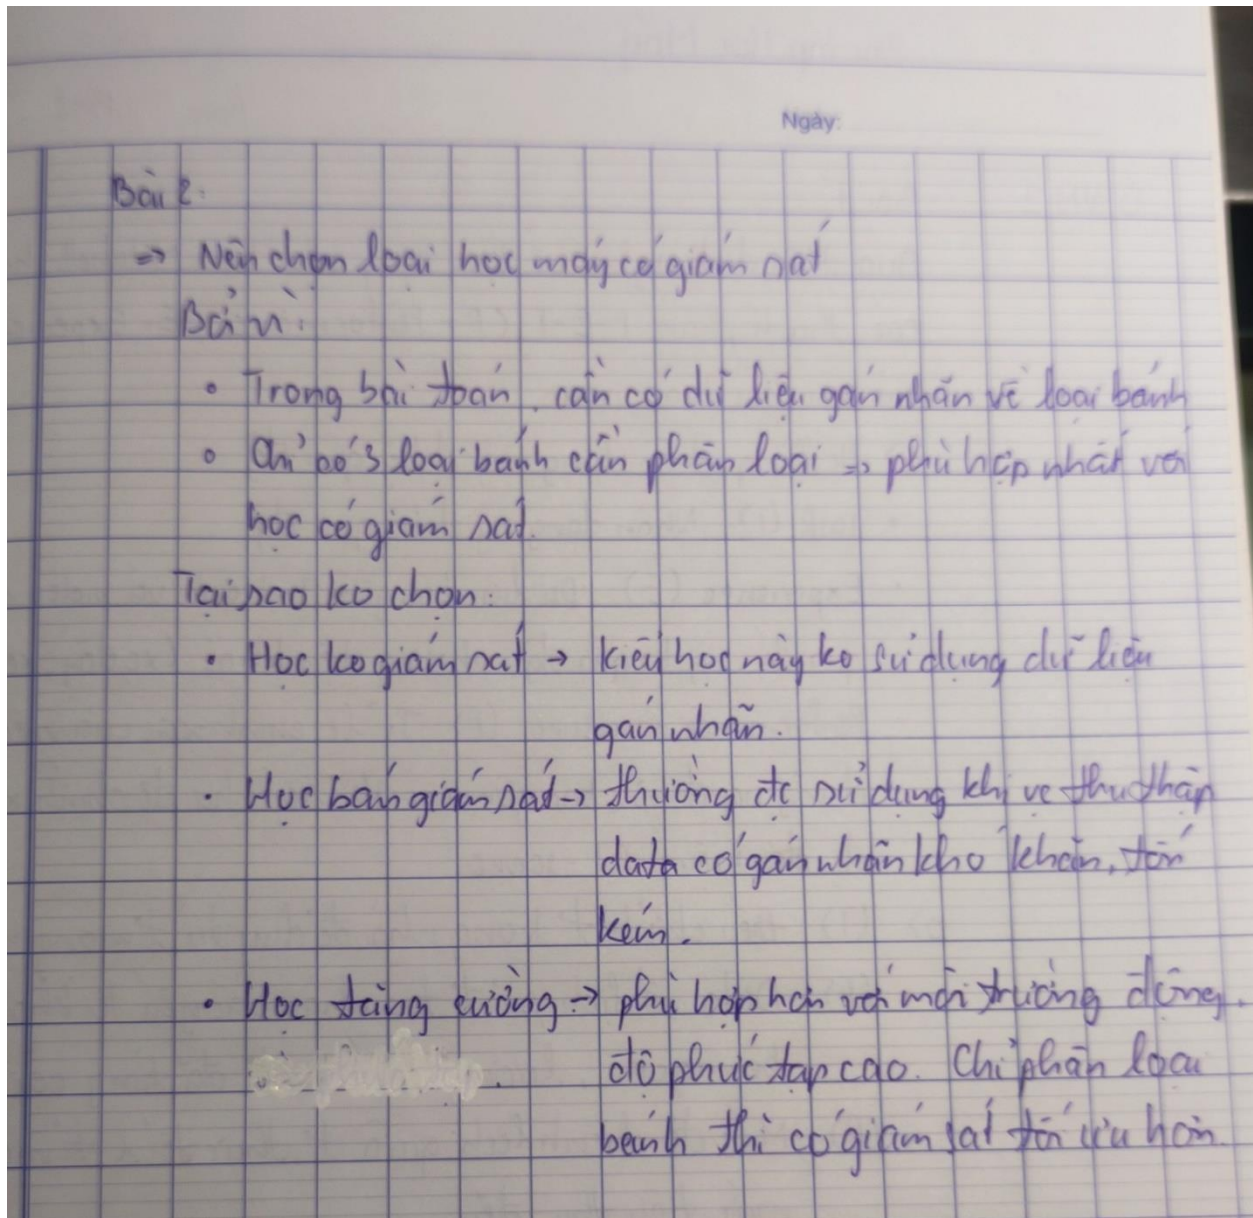 Ngày:
Bài 2:
=> Nên chọn loại học máy có giám sát
Bởi vì:
• Trong bài toán, cần có dữ liệu gán nhãn về loại bánh
• Chỉ có 3 loại bánh cần phân loại => phù hợp nhất với
học có giám sát.
Tại sao ko chọn:
• Học ko giám sát → kiểu học này ko sử dụng dữ liệu
gán nhãn.
• Học bán giám sát → thường đc sử dụng khi vc thu thập
data có gán nhãn khó khăn, tốn
kém.
• Học tăng cường → phù hợp hơn với môi trường động,
độ phức tạp cao. Chỉ phân loại
bánh thì có giám sát tối ưu hơn